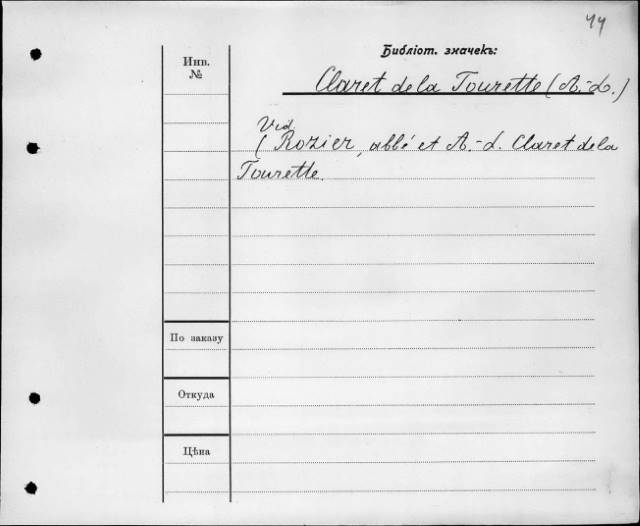 44
Библіот. значекъ:
Инв.
№
Claret de la Tourette (A.-L.)
Vid
( Rozier, abbé et A.-L. Claret de la
Tourette.
По заказу
Откуда
Цѣна